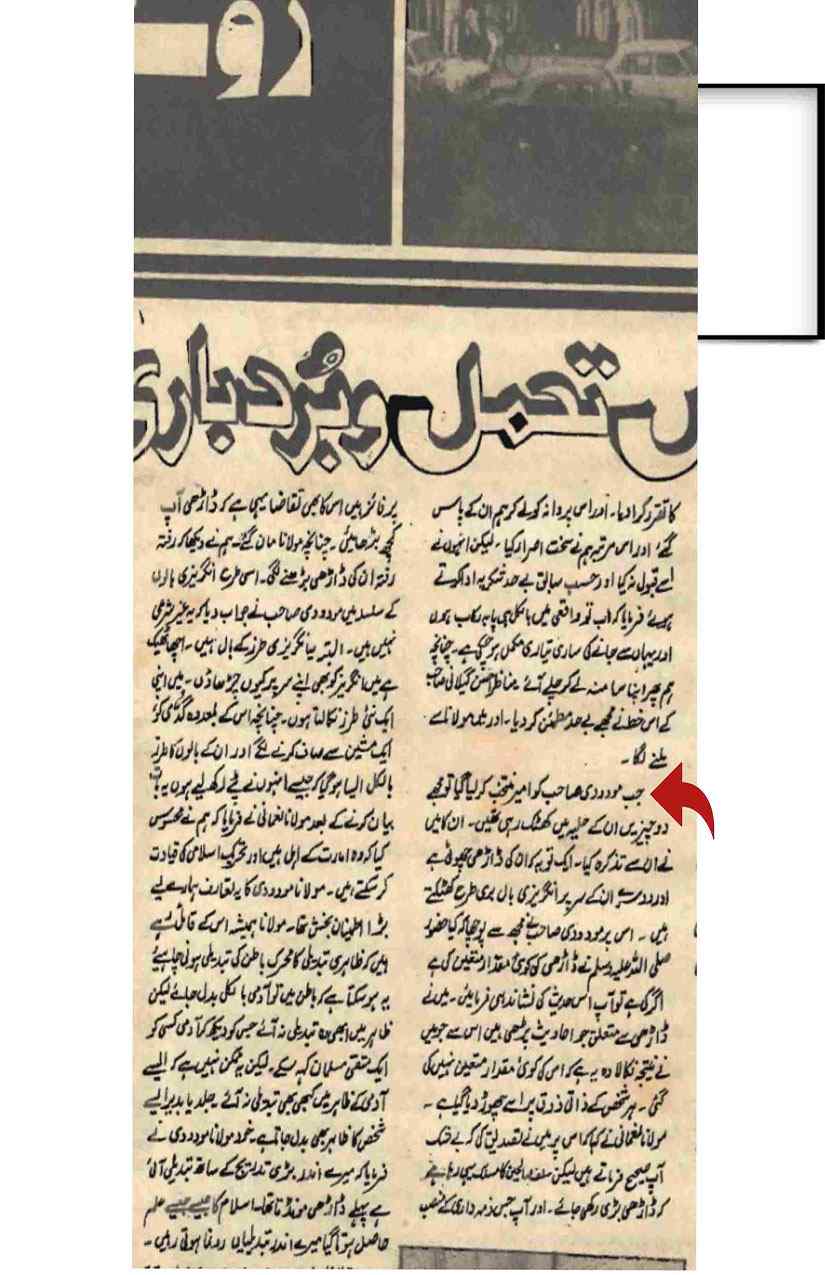 رو
ں تحمل و بُردباری
کا تقرر کرا دیا۔ اور اس پروانہ کو لے کر ہم ان کے پاس
گئے اور اس مرتبہ ہم نے سخت اصرار کیا۔ لیکن انہوں نے
اسے قبول نہ کیا اور حسب سابق بے حد شکریہ ادا کرتے
ہوئے فرمایا کہ اب تو واقعی میں بالکل ہی پابہ رکاب ہوں
اور یہاں سے جانے کی ساری تیاری مکمل ہو چکی ہے۔ چنانچہ
ہم پھر اپنا سا منہ لے کر چلے آئے۔ مناظر احسن گیلانی صاحب
کے اس خط نے مجھے بے حد مطمئن کر دیا۔ اور میں مولانا سے
ملنے لگا۔
جب مودودی صاحب کو امیر منتخب کر لیا گیا تو مجھے
دو چیزیں ان کے حلیہ میں کھٹک رہی تھیں۔ ان کا میں
نے ان سے تذکرہ کیا۔ ایک تو یہ کہ ان کی ڈاڑھی چھوٹی ہے
اور دوسرے ان کے سر پر انگریزی بال بری طرح کھٹکتے
ہیں۔ اس پر مودودی صاحب نے مجھ سے پوچھا کہ کیا حضورؐ
صلی اللہ علیہ وسلم نے ڈاڑھی کی کوئی مقدار متعین کی ہے
اگر کی ہے تو آپ اس حدیث کی نشاندہی فرمائیں۔ میں نے
ڈاڑھی سے متعلق جو احادیث پڑھی ہیں اس سے جو میں
نے نتیجہ نکالا وہ یہ ہے کہ اس کی کوئی مقدار متعین نہیں کی
گئی۔ ہر شخص کے ذاتی ذوق پر اسے چھوڑ دیا گیا ہے۔
مولانا نعمانی نے کہا کہ اس پر میں نے تصدیق کی کہ بے شک
آپ صحیح فرماتے ہیں لیکن سلف صالحین کا مسلک یہی رہا ہے
کہ ڈاڑھی بڑی رکھی جائے۔ اور آپ جس ذمہ داری کے منصب
پر فائز ہیں اس کا بھی تقاضا یہی ہے کہ ڈاڑھی آپ
کچھ بڑھائیں۔ چنانچہ مولانا مان گئے۔ ہم نے دیکھا کہ رفتہ
رفتہ ان کی ڈاڑھی بڑھنے لگی۔ اسی طرح انگریزی بالوں
کے سلسلہ میں مودودی صاحب نے جواب دیا کہ یہ غیر شرعی
نہیں ہیں۔ البتہ یہ انگریزی طرز کے بال ہیں۔ اچھا ٹھیک
ہے میں انگریز کو بھی اپنے سر پر کیوں چڑھاؤں۔ میں اپنی
ایک نئی طرز نکالتا ہوں۔ چنانچہ اس کے بعد وہ گدی کو
ایک مشین سے صاف کرنے لگے اور ان کے بالوں کا طرز
بالکل ایسا ہو گیا کہ جیسے انہوں نے پٹے رکھ لیے ہوں یہ بات
بیان کرنے کے بعد مولانا نعمانی نے فرمایا کہ ہم نے محسوس
کیا کہ وہ امارت کے اہل ہیں اور تحریک اسلامی کی قیادت
کر سکتے ہیں۔ مولانا مودودی کا یہ تعارف ہمارے لیے
بڑا اطمینان بخش تھا۔ مولانا ہمیشہ اس کے قائل رہے
ہیں کہ ظاہری تبدیلی کا محرک باطن کی تبدیلی ہونی چاہیے
یہ ہو سکتا ہے کہ باطن میں تو آدمی بالکل بدل جائے لیکن
ظاہر میں ابھی وہ تبدیلی نہ آئے جس کو دیکھ کر آدمی کسی کو
ایک متقی مسلمان کہہ سکے۔ لیکن یہ ممکن نہیں ہے کہ ایسے
آدمی کے ظاہر میں کبھی بھی تبدیلی نہ آئے۔ جلد یا بدیر ایسے
شخص کا ظاہر بھی بدل جاتا ہے۔ خود مولانا مودودی نے
فرمایا کہ میرے اندر بڑی تدریج کے ساتھ تبدیلی آئی
ہے پہلے ڈاڑھی مونڈتا تھا۔ اسلام کا جیسے جیسے علم
حاصل ہوتا گیا میرے اندر تبدیلیاں رونما ہوتی رہیں۔